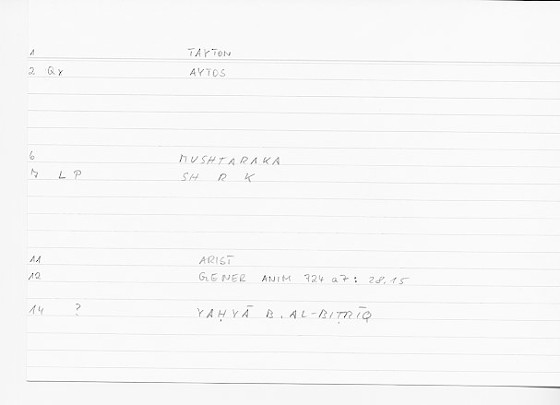 1 TAYTON
2 Qγ AYTOS
6 MUSHTARAKA
7 L P SH R K
11 ARIST
12 GENER ANIM 724 a7: 28.15
14 ? YAḤYĀ B. AL-BIṬRĪQ